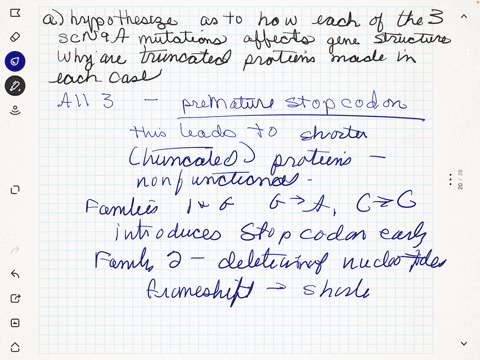 a) hypothesize as to how each of the 3
SCN9A mutations affects gene structure
Why are truncated proteins made in
each case
All 3 — premature stop codon
this leads to shorter
(truncated) proteins —
nonfunctional.
Families 1 & G→A, C→G
introduces Stop codon early
Family 2 — deletion of nucleotides
frameshift →
20 / 28